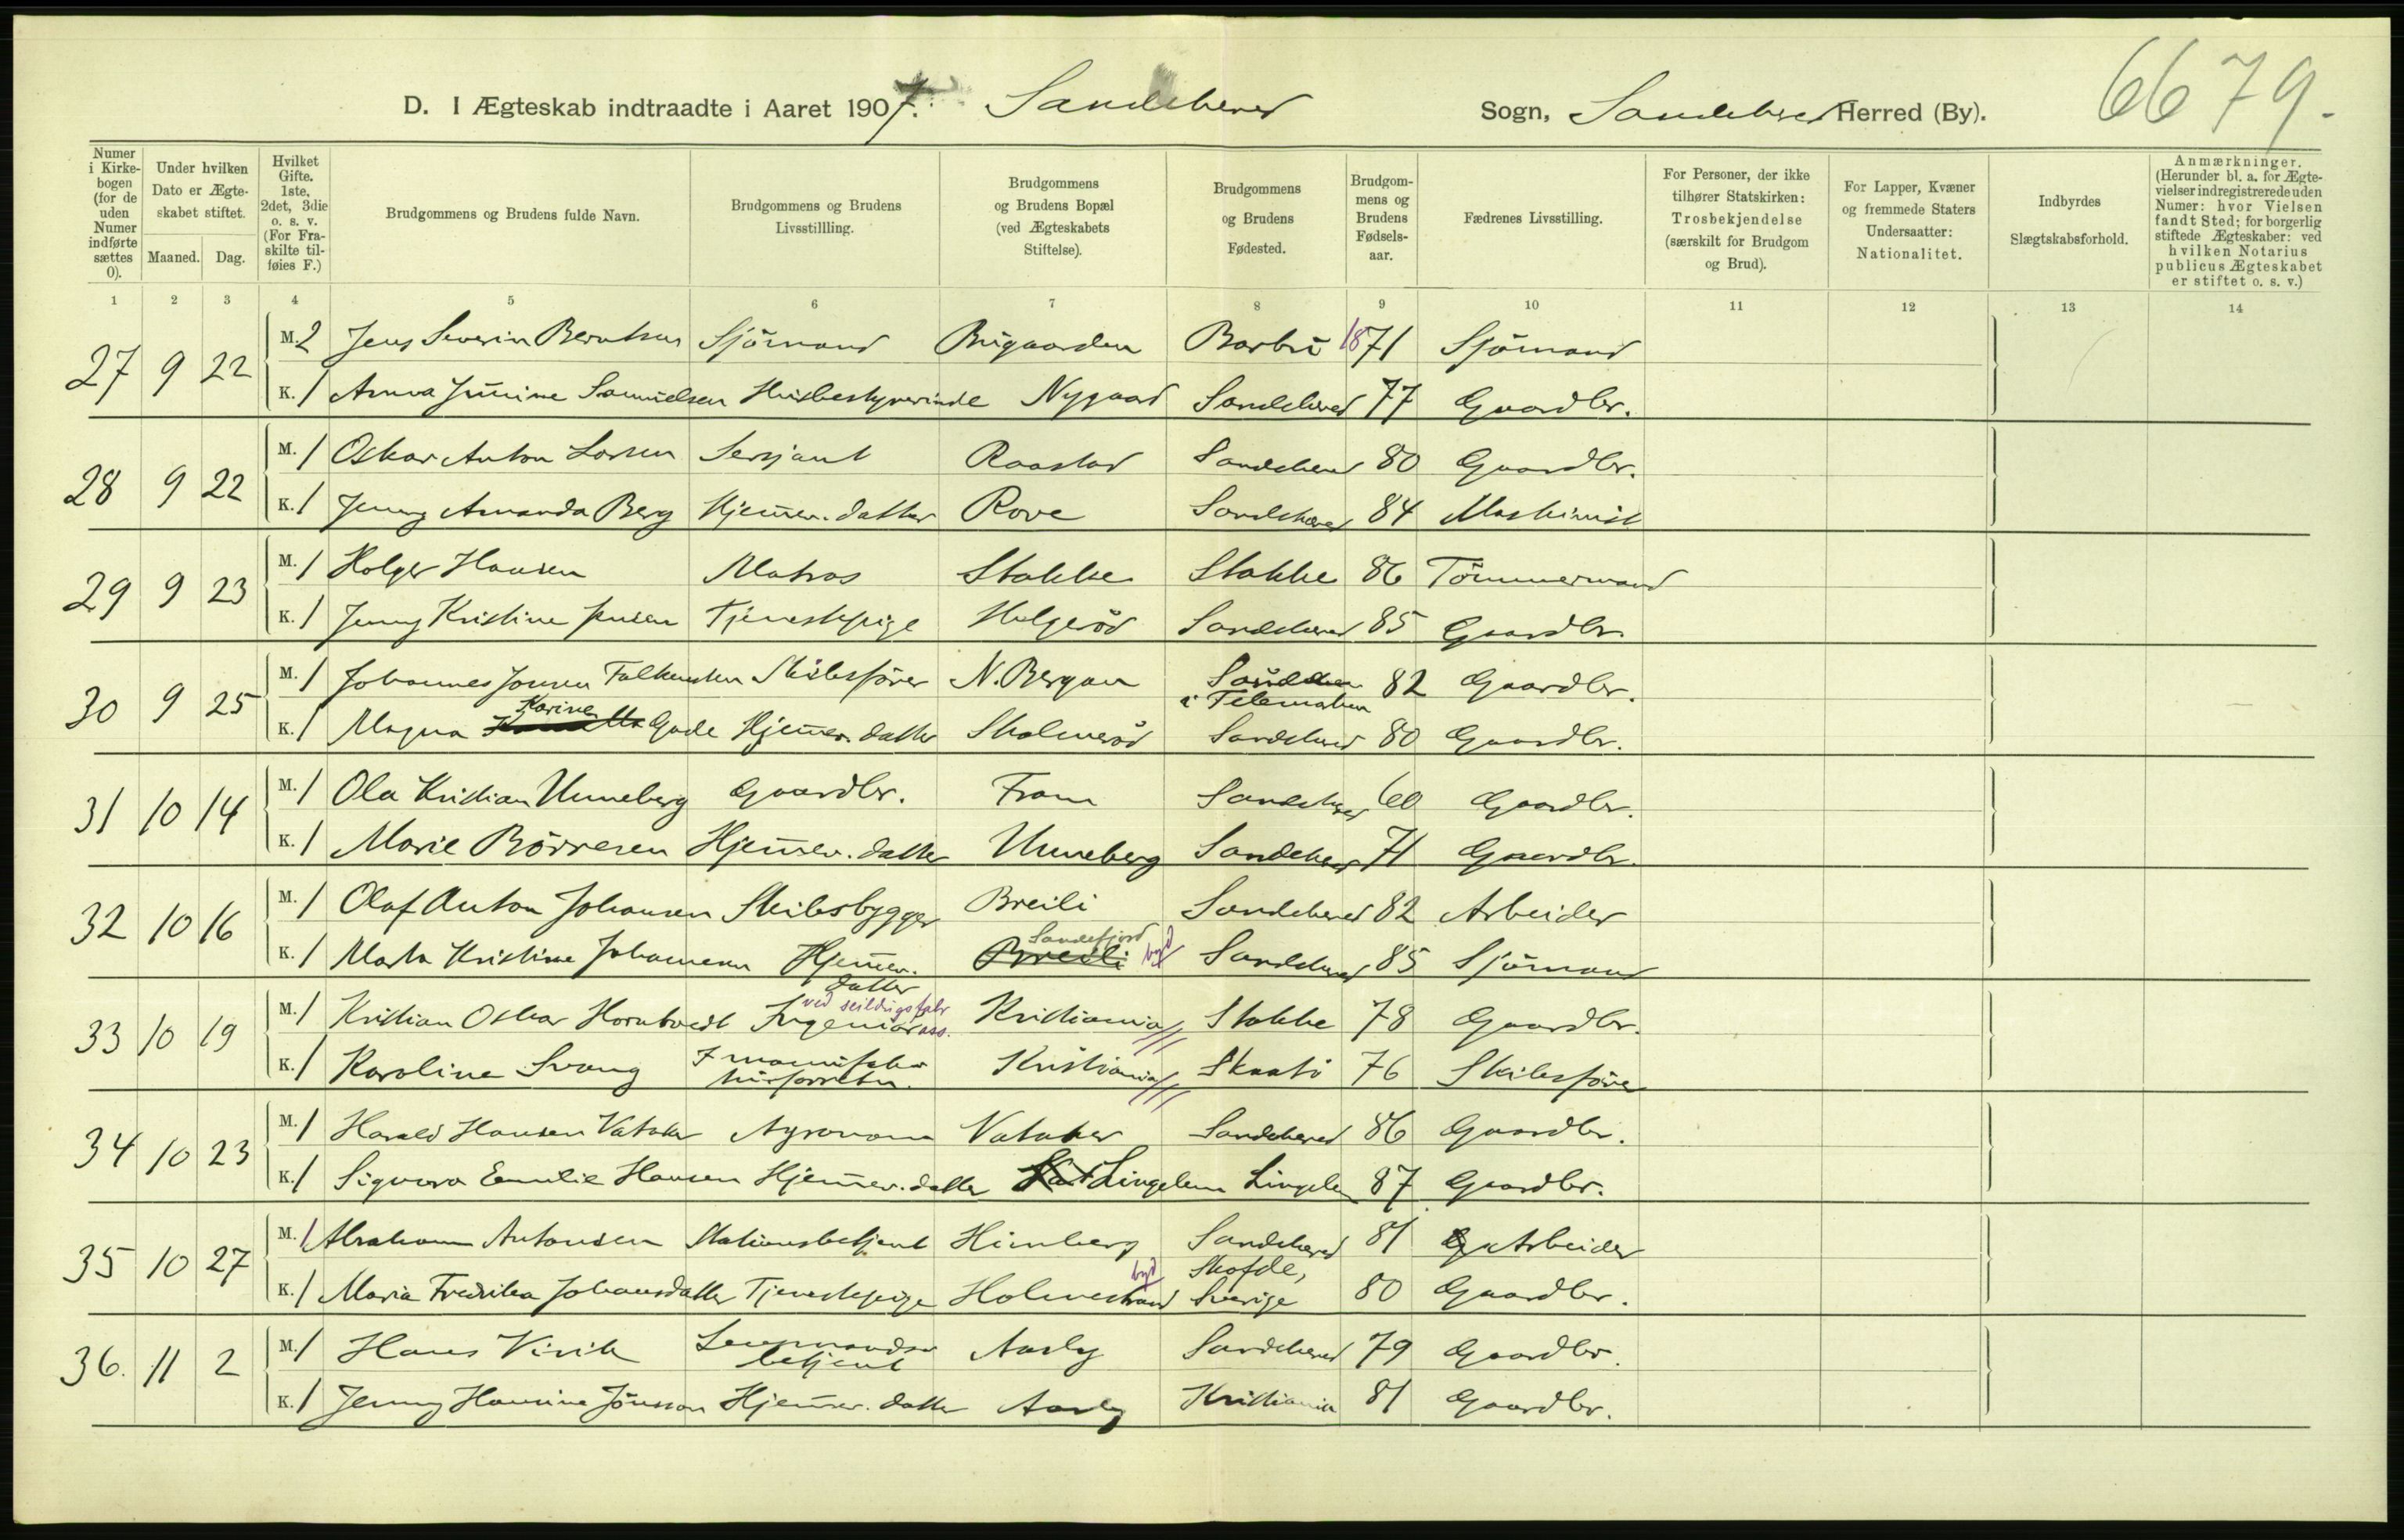 6679.
D. I Ægteskab indtraadte i Aaret 1907. Sandeherred Sogn, Sandeherred Herred (By).
Numer i Kirkebogen (for de uden Numer indførte sættes 0).
Under hvilken Dato er Ægteskabet stiftet.
Maaned. Dag.
Hvilket Gifte. 1ste, 2det, 3die o. s. v. (For Fraskilte tilføies F.)
Brudgommens og Brudens fulde Navn.
Brudgommens og Brudens Livsstillling.
Brudgommens og Brudens Bopæl (ved Ægteskabets Stiftelse).
Brudgommens og Brudens Fødested.
Brudgommens og Brudens Fødselsaar.
Fædrenes Livsstilling.
For Personer, der ikke tilhører Statskirken: Trosbekjendelse (særskilt for Brudgom og Brud).
For Lapper, Kvæner og fremmede Staters Undersaatter: Nationalitet.
Indbyrdes Slægtskabsforhold.
Anmærkninger. (Herunder bl. a. for Ægtevielser indregistrerede uden Numer: hvor Vielsen fandt Sted; for borgerlig stiftede Ægteskaber: ved hvilken Notarius publicus Ægteskabet er stiftet o. s. v.)
1 2 3 4 5 6 7 8 9 10 11 12 13 14
27 9 22 M. 2 Jens Severin Berntsen Sjömand Bugaarden Barbu 1871 Sjömand
K. 1 Anna Junine Samuelsen Husbestyrerinde Nygaard Sandeherred 77 Gaardbr.
28 9 22 M. 1 Oskar Anton Larsen Sersjant Raastad Sandeherred 80 Gaardbr.
K. 1 Jenny Amanda Berg Hjemmev. datter Rove Sandeherred 84 Maskinist
29 9 23 M. 1 Holger Hansen Matros Stokke Stokke 86 Tömmermand
K. 1 Jenny Kristine Jensen Tjenestepige Helgeröd Sandeherred 85 Gaardbr.
30 9 25 M. 1 Johannes Jonsen Falkensten Skibsförer N. Bergan i Telemarken 82 Gaardbr.
K. 1 Magna Karine Gade Hjemmev. datter Skolmeröd Sandeherred 80 Gaardbr.
31 10 14 M. 1 Ola Kristian Unneberg Gaardbr. Fram Sandeherred 60 Gaardbr.
K. 1 Marie Börresen Hjemmev. datter Unneberg Sandeherred 71 Gaardbr.
32 10 16 M. 1 Olaf Anton Johansen Skibsbygger Breili Sandeherred 82 Arbeider
K. 1 Marta Kristine Johannesen Hjemmev. datter Breili Sandefjord by Sandeherred 85 Sjömand
33 10 19 M. 1 Kristian Oskar Horntvedt Ingeniör ass. ved seildugsfabr Kristiania Stokke 78 Gaardbr.
K. 1 Karoline Svang I manufakturforretn. Kristiania Skaatö 76 Skibsförer
34 10 23 M. 1 Harald Hansen Vataker Agronom Vataker Sandeherred 86 Gaardbr.
K. 1 Signora Emilie Hansen Hjemmev. datter Lingelem Lingelem 87 Gaardbr.
35 10 27 M. 1 Abraham Antonsen Stationsbetjent Himberg Sandeherred 81 Arbeider
K. 1 Maria Fredrika Johansdatter Tjenestepige Holmestrand by Skofde, Sverige 80 Gaardbr.
36. 11 2 M. 1 Hans Virik Lensmandsbetjent Aasly Sandeherred 79 Gaardbr.
K. 1 Jenny Hansine Jönsson Hjemmev. datter Aasly Kristiania 81 Gaardbr.